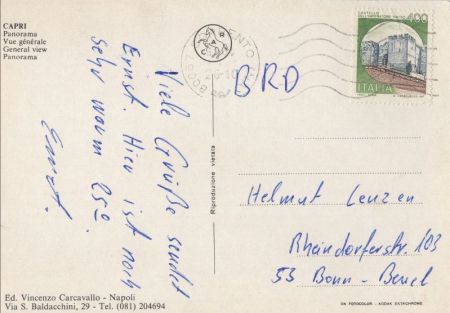 CAPRI
Panorama
Vue générale
General view
Panorama
Viele Grüße sendet
Ernst. Hier ist noch
sehr warm 25°
Ernst.
Ed. Vincenzo Carcavallo - Napoli
Via S. Baldacchini, 29 - Tel. (081) 204694
Riproduzione vietata
400
ITALIA
BRD
Helmut Lenzen
Rheindorferstr. 103
53 Bonn - Beuel
KODAK EKTACHROME